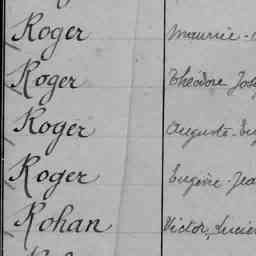 Roger Maurice
Roger Théodore
Roger Auguste
Roger Eugène
Rohan Victor, Lucien